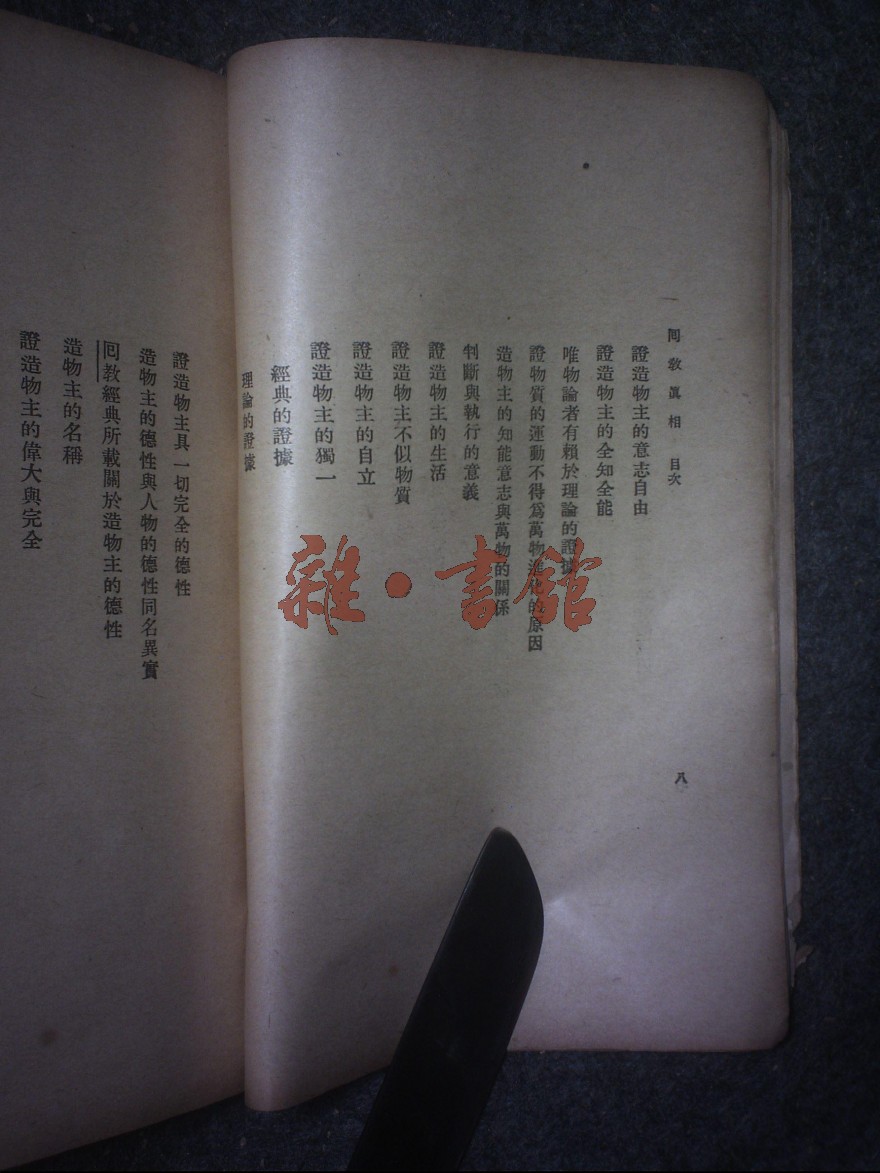 回教眞相 目次
八
證造物主的意志自由
證造物主的全知全能
唯物論者有賴於理論的證據
證物質的運動不得爲萬物進化的原因
造物主的知能意志與萬物的關係
判斷與執行的意義
證造物主的生活
證造物主不似物質
證造物主的自立
證造物主的獨一
經典的證據
理論的證據
證造物主具一切完全的德性
造物主的德性與人物的德性同名異實
回教經典所載關於造物主的德性
造物主的名稱
證造物主的偉大與完全
雜·書館